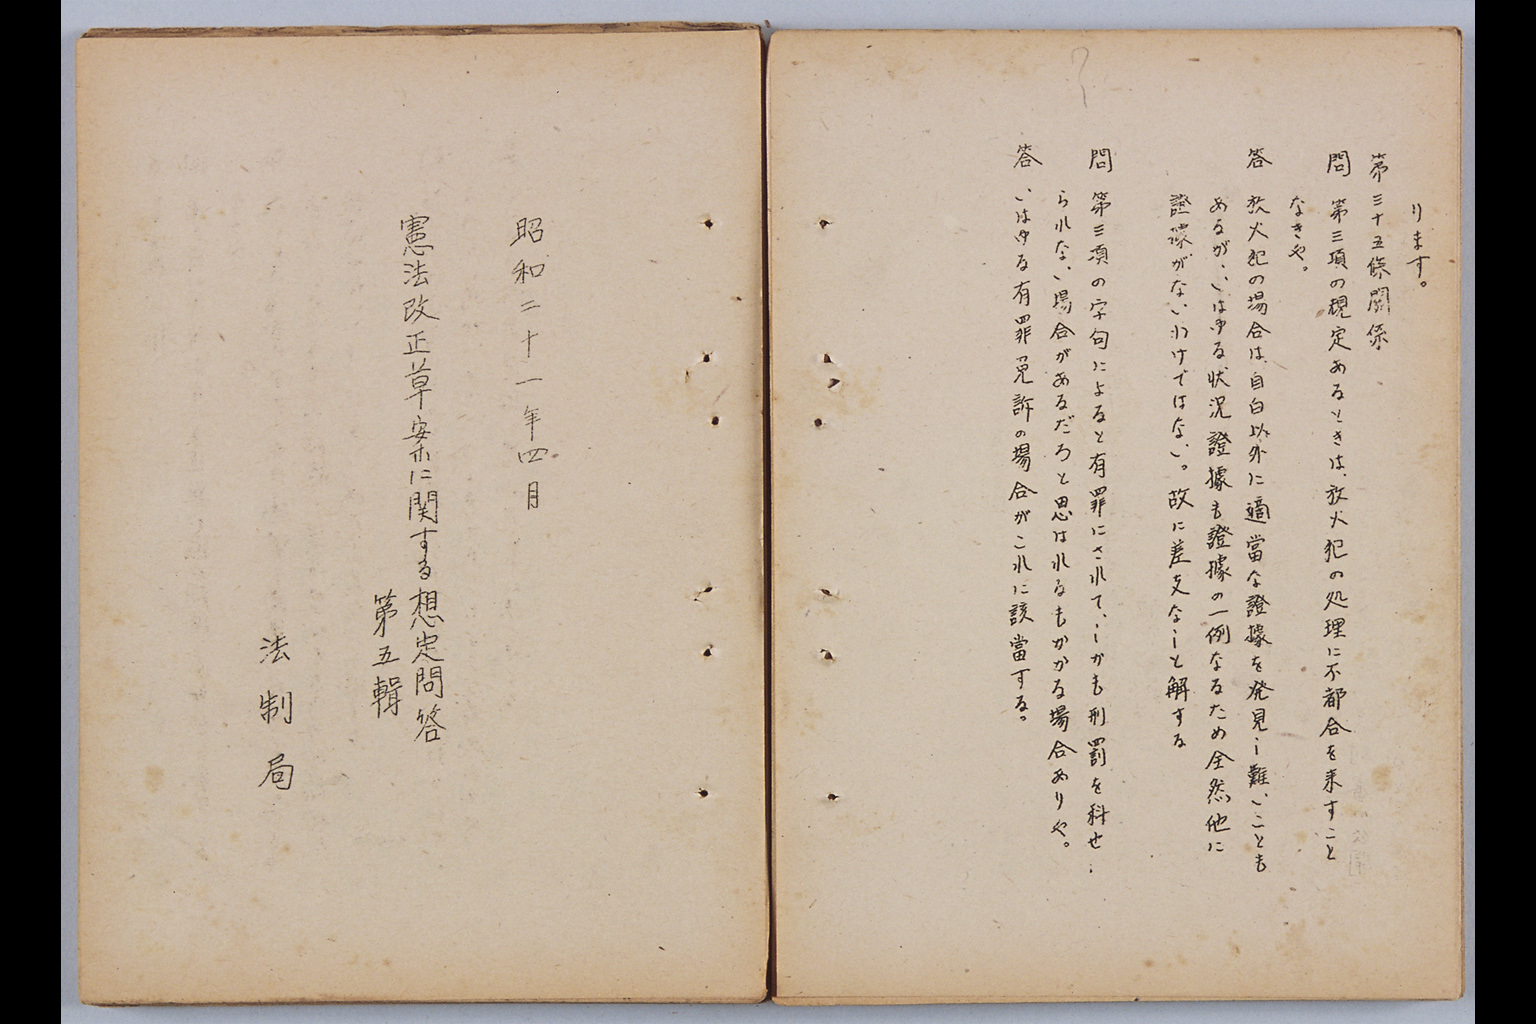 ります。
第三十五條關係
問 第三項の規定あるときは、放火犯の処理に不都合を来すこと
なきや。
答 放火犯の場合は、自白以外に適當な證據を発見し難いことも
あるが、いはゆる状況證據も證據の一例なるため全然他に
證據がないわけではない。故に差支なしと解する
問 第三項の字句によると有罪にされて、しかも刑罰を科せ
られない場合があるだろと思はれるもかかる場合ありや。
答 いはゆる有罪免訴の場合がこれに該當する。
昭和二十一年四月
憲法改正草案に関する想定問答
第五輯
法制局